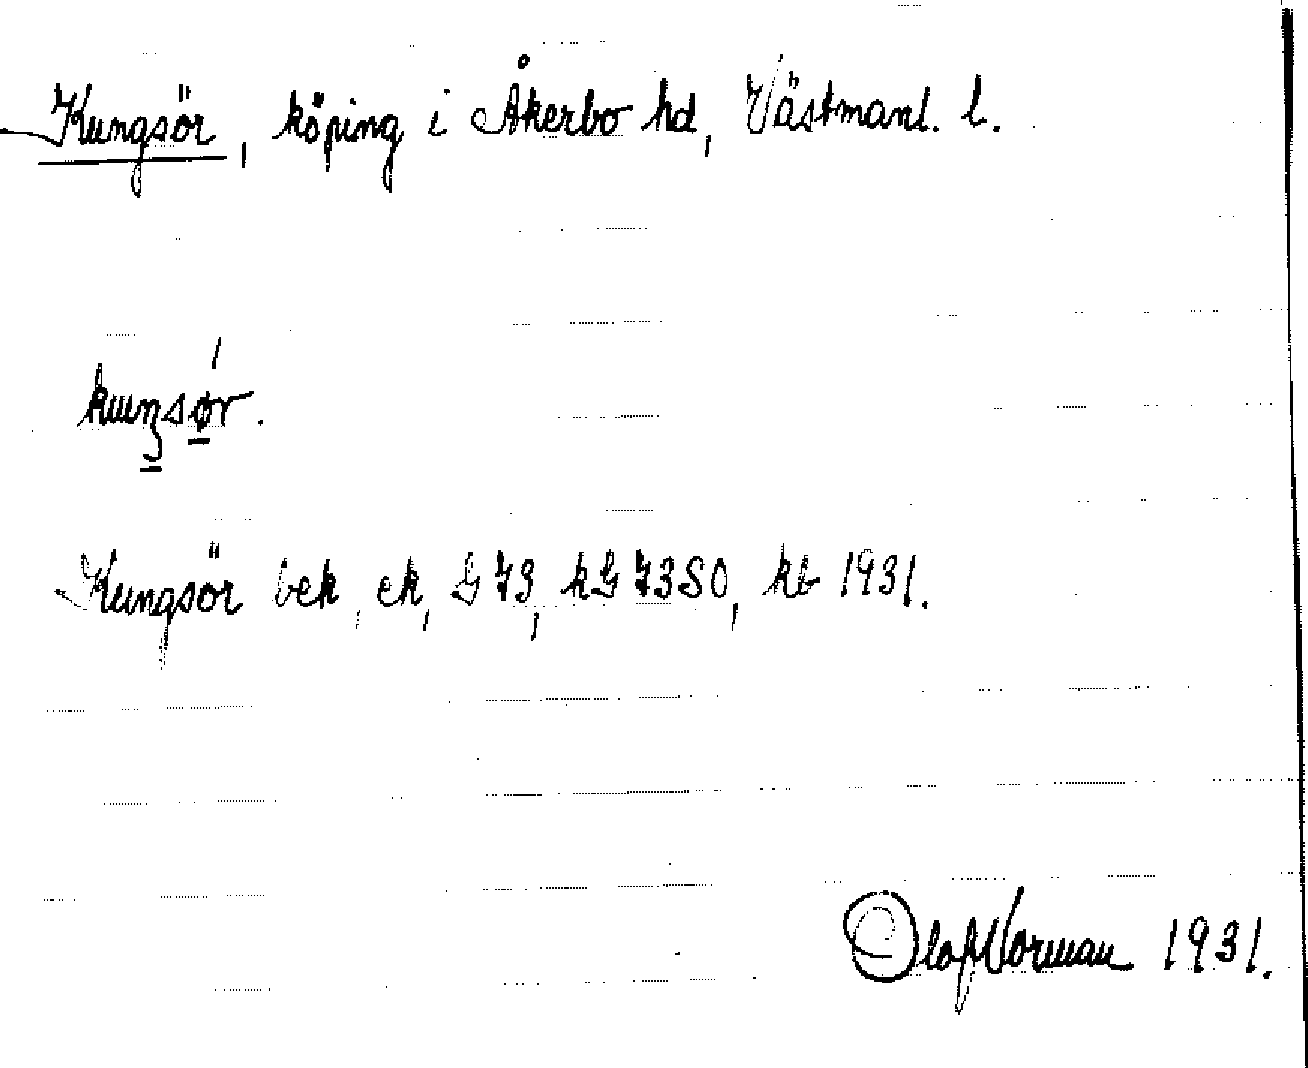 Kungsör, köping i Åkerbo hd, Västmanl. l.
kuŋsø̠r.
Kungsör bek, ek, G 73, kG 73 SO, kb 1931.
Olof Norman 1931.